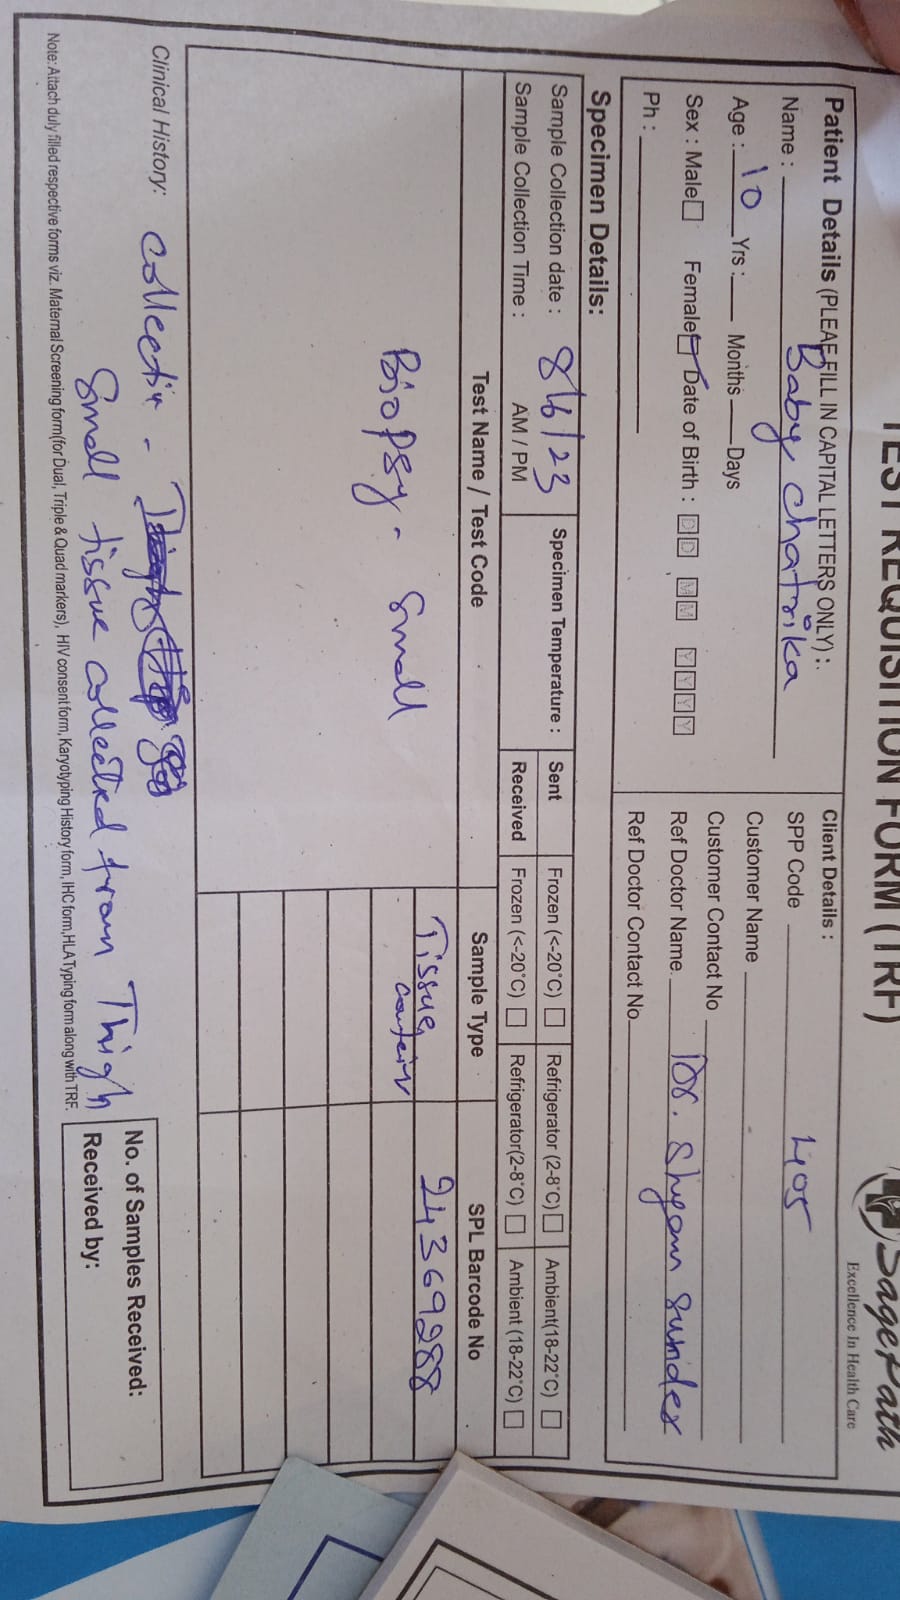 TEST REQUISITION FORM (TRF)
SagePath
Excellence In Health Care
Patient Details (PLEAE FILL IN CAPITAL LETTERS ONLY) :
Name : Baby chatrika
Age : 10 Yrs : Months Days
Sex : Male Female Date of Birth : D D M M Y Y Y Y
Ph :
Client Details :
SPP Code 4105
Customer Name
Customer Contact No
Ref Doctor Name Dr. Shyam Sunder
Ref Doctor Contact No
Specimen Details:
Sample Collection date : 8/6/23
Sample Collection Time : AM / PM
Specimen Temperature :
Sent Frozen (<-20°C) Refrigerator (2-8°C) Ambient(18-22°C)
Received Frozen (<-20°C) Refrigerator(2-8°C) Ambient (18-22°C)
Test Name / Test Code Sample Type SPL Barcode No
Biopsy - Small Tissue 24369288
Clinical History: collectin -
Small tissue collected from Thigh
No. of Samples Received:
Received by:
Note: Attach duly filled respective forms viz. Maternal Screening form(for Dual, Triple & Quad markers), HIV consent form, Karyotyping History form, IHC form,HLA Typing form along with TRF.